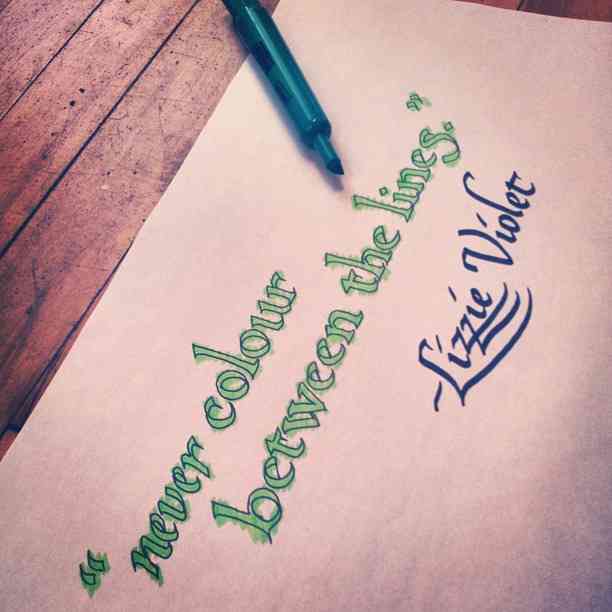 "never colour
between the lines."
Lizzie Violet